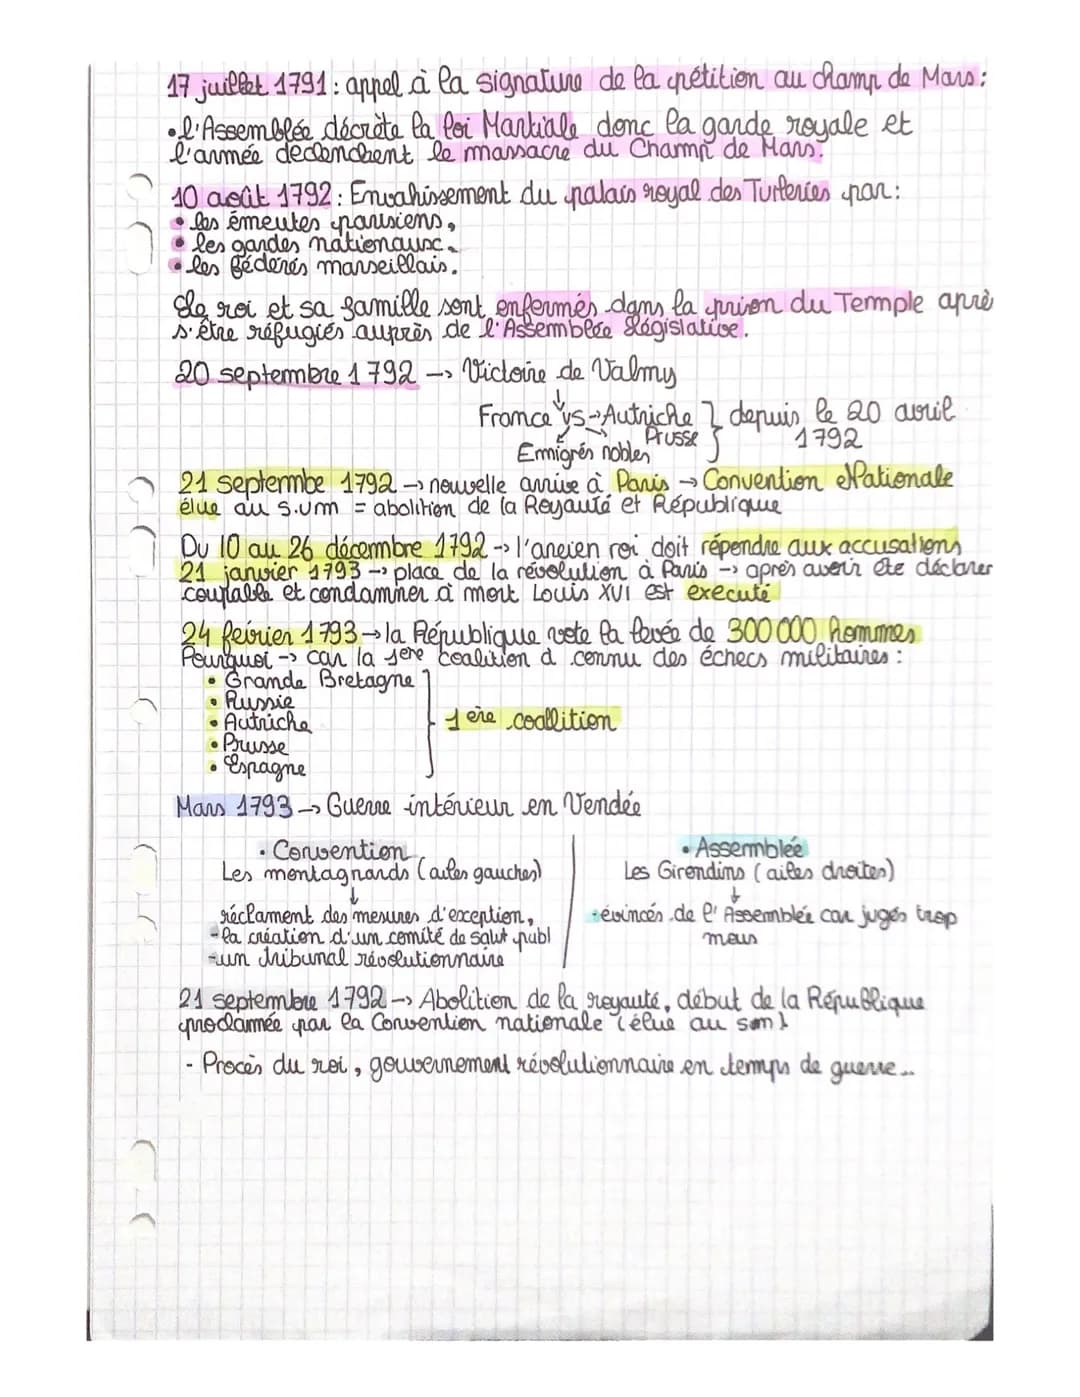 17 juillet 1791 : appel à la signature de la pétition au champ de Mars :
• l'Assemblée décrète la loi Martiale donc la garde royale et
l'armée déclenchent le massacre du Champ de Mars.
10 août 1792 : Envahissement du palais royal des Tuileries par :
• les émeutes parisiens,
• les gardes nationaux.
• les fédérés marseillais.
Le roi et sa famille sont enfermés dans la prison du Temple aprè
s'être réfugiés auprès de l'Assemblée Législative.
20 septembre 1792 → Victoire de Valmy
↓
France vs → Autriche } depuis le 20 avril
Prusse } 1792
Emigrés nobles
21 septembe 1792 → nouvelle arrive à Paris → Convention Nationale
élue au s.um = abolition de la Royauté et République
Du 10 au 26 décembre 1792 → l'ancien roi doit répendre aux accusations
21 janvier 1793 → place de la révolution à Paris → après avoir été déclarer
coupable et condamner à mort Louis XVI est executé
24 feivrier 1793 → la République vote la levée de 300 000 hommes
Pourquoi → car la 1ere coalition à connu des échecs militaires :
• Grande Bretagne
• Russie
• Autriche } 1 ère coallition
• Prusse
• Espagne
Mars 1793 → Guerre intérieur en Vendée
• Convention
Les montagnards (ailes gauches)
↓
réclament des mesures d'exception,
- la création d'un comité de salut publ
- un tribunal révolutionnaire
• Assemblée
Les Girondins (ailes droites)
↓
évincés de l'Assemblée car jugés trop
mous
21 septembre 1792 → Abolition de la royauté, début de la République
proclamée par la Convention nationale (élue au sum)
- Procès du roi, gouvernement révolutionnaire en temps de guerre...